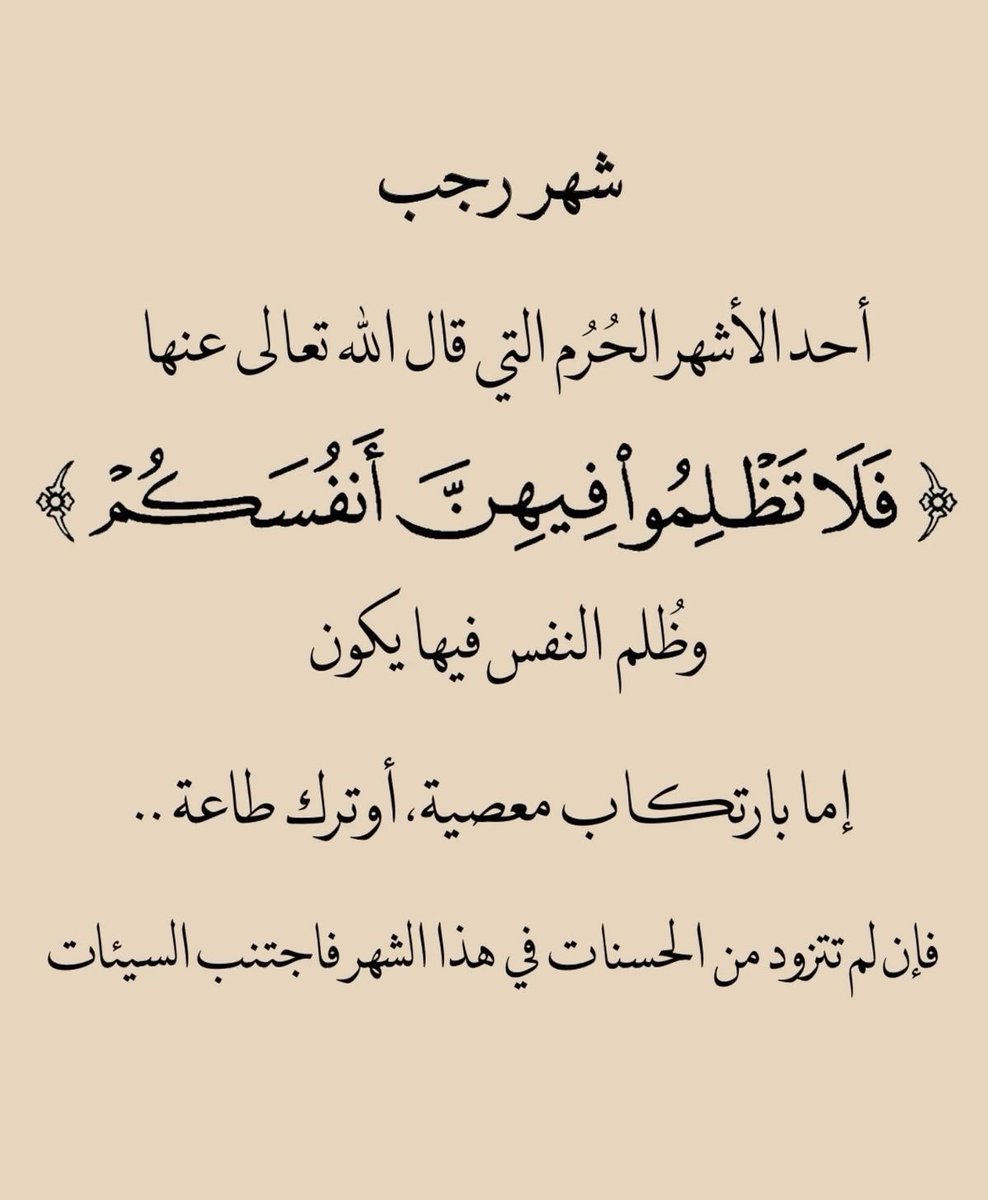 شهر رجب
أحد الأشهر الحُرُم التي قال الله تعالى عنها
﴿ فَلَا تَظْلِمُوا۟ فِيهِنَّ أَنفُسَكُمْ ﴾
وظُلم النفس فيها يكون
إما بارتكاب معصية، أو ترك طاعة ..
فإن لم تتزود من الحسنات في هذا الشهر فاجتنب السيئات